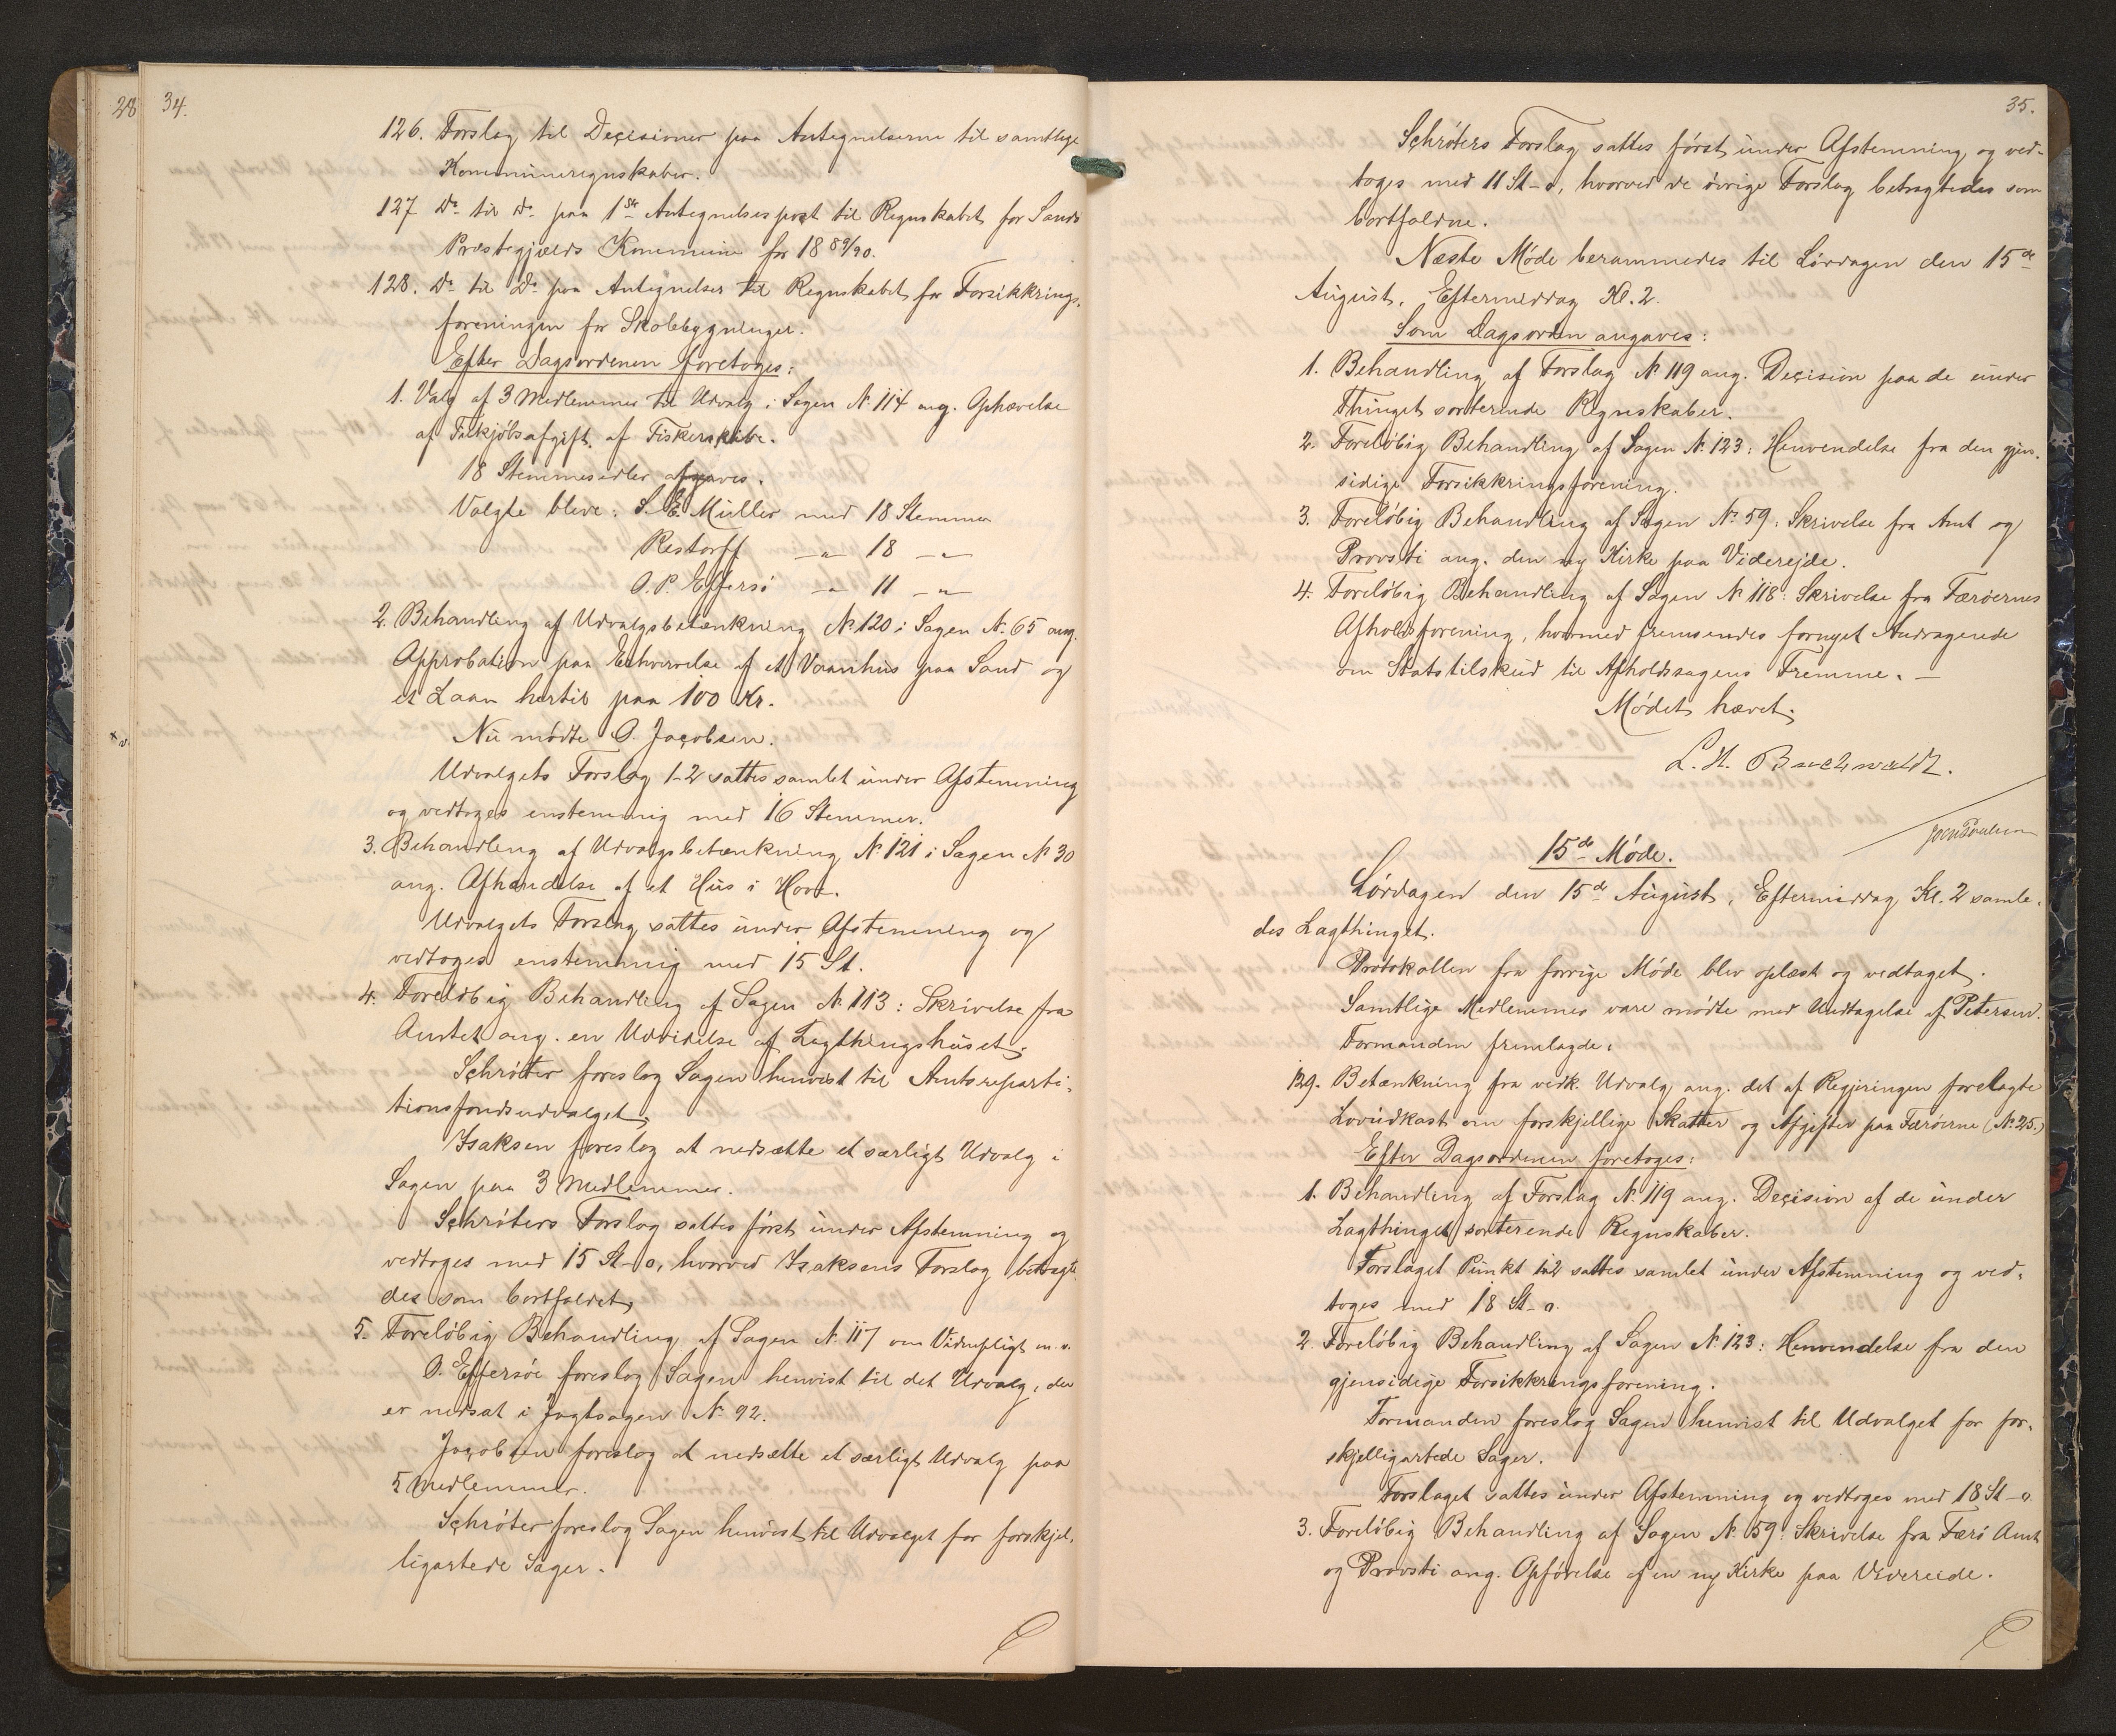 28 34.
126. Forslag til Decisioner paa Antegnelserne til samtlige
Kommuneregnskaber.
127 Do til Do paa 1ste Antegnelsespost til Regnskabet for Sands
Præstegjælds Kommune for 1889/90.
128. Do til Do paa Antegnelser til Regnskabet for Forsikkrings-
foreningen for Skolebygninger.
Efter Dagsordenen foretoges:
1. Valg af 3 Medlemmer til Udvalg i Sagen No 114 ang. Ophævelse
af Falkjøbsafgift af Fiskerskibe.
18 Stemmesedler afgaves.
Valgte bleve: S. E. Müller med 18 Stemmer
Restorff —"— 18 —"—
O. P. Effersö —"— 11 —"—
2. Behandling af Udvalgsbetænkning No 120 i Sagen No 65 ang.
Approbation paa Erhvervelse af et Vaanhus paa Sand og
et Laan hertil paa 100 Kr.
Nu mødte O. Jacobsen.
Udvalgets Forslag 1-2 sattes samlet under Afstemning
og vedtoges enstemmig med 16 Stemmer.
3. Behandling af Udvalgsbetænkning No 121 i Sagen No 30
ang. Afhændelse af et Hus i Hove.
Udvalgets Forslag sattes under Afstemning og
vedtoges enstemmig med 15 St.
4. Foreløbig Behandling af Sagen No 113: Skrivelse fra
Amtet ang. en Udvidelse af Lagthingshuset.
Schrøter foreslog Sagen henvist til Amtsreparti-
tionsfondsudvalget.
Isaksen foreslog at nedsætte et særligt Udvalg i
Sagen paa 3 Medlemmer.
Schrøters Forslag sattes først under Afstemning og
vedtoges med 15 St-0, hvorved Isaksens Forslag betragte-
des som bortfaldet.
5. Foreløbig Behandling af Sagen No 117 om Vidnepligt m. v.
O. Effersøe foreslog Sagen henvist til det Udvalg, der
er nedsat i Jagtsagen No 92.
Jacobsen foreslog at nedsætte et særligt Udvalg paa
5 Medlemmer.
Schrøter foreslog Sagen henvist til Udvalget for forskjel-
ligartede Sager.
35.
Schrøters Forslag sattes først under Afstemning og ved-
toges med 11 St-0, hvorved de øvrige Forslag betragtedes som
bortfaldne.
Næste Møde berammedes til Lørdagen den 15de
August, Eftermiddag Kl. 2.
Som Dagsorden angaves:
1. Behandling af Forslag No 119 ang. Decision paa de under
Thinget sorterende Regnskaber.
2. Foreløbig Behandling af Sagen No 123: Henvendelse fra den gjen-
sidige Forsikkringsforening.
3. Foreløbig Behandling af Sagen No 59: Skrivelse fra Amt og
Provsti ang. den ny Kirke paa Viderejde.
4. Foreløbig Behandling af Sagen No 118: Skrivelse fra Færøernes
Afholdsforening, hvormed fremsendes fornyet Andragende
om Statstilskud til Afholdssagens Fremme. —
Mødet hævet.
L. H. Buchwaldt.
Joen Poulsen
15de Møde.
Lørdagen den 15de August, Eftermiddag Kl. 2 samle-
des Lagthinget.
Protokollen fra forrige Møde blev oplæst og vedtaget.
Samtlige Medlemmer vare mødte med Undtagelse af Petersen.
Formanden fremlagde:
129. Betænkning fra vedk. Udvalg ang. det af Regjeringen forelagte
Lovudkast om forskjellige Skatter og Afgifter paa Færøerne (No 25.)
Efter Dagsordenen foretoges:
1. Behandling af Forslag No 119 ang. Decision af de under
Lagthinget sorterende Regnskaber.
Forslaget Punkt 1-2 sattes samlet under Afstemning og ved-
toges med 18 St-0.
2. Foreløbig Behandling af Sagen No 123: Henvendelse fra den
gjensidige Forsikkringsforening.
Formanden foreslog Sagen henvist til Udvalget for for-
skjelligartede Sager.
Forslaget sattes under Afstemning og vedtoges med 18 St-0.
3. Foreløbig Behandling af Sagen No 59: Skrivelse fra Færø Amt
og Provsti ang. Opførelse af en ny Kirke paa Videreide.